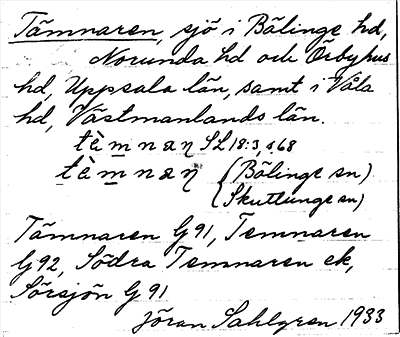 Tämnaren, sjö i Bälinge hd,
Norunda hd och Örbyhus
hd, Uppsala län, samt i Våla
hd, Västmanlands län.
tèmnaꞃ SL 18:3, s. 68
tèmnaꞃ (Bälinge sn)
(Skuttunge sn)
Tämnaren G 91, Temnaren
G 92, Södra Temnaren ek,
Sörsjön G 91
Jöran Sahlgren 1933